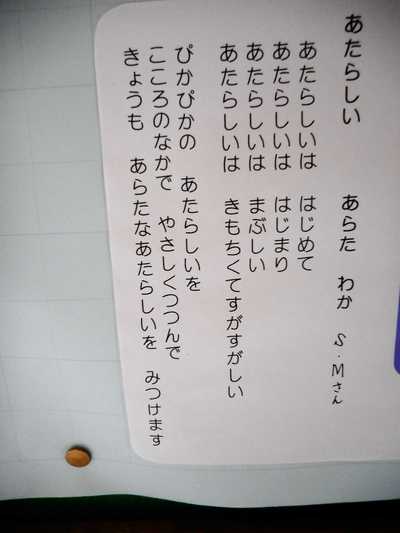 あたらしい　あらた　わか　S・Mさん
あたらしいは　はじめて
あたらしいは　はじまり
あたらしいは　まぶしい
あたらしいは　きもちくてすがすがしい
ぴかぴかの　あたらしいを
こころのなかで　やさしくつつんで
きょうも　あらたなあたらしいを　みつけます